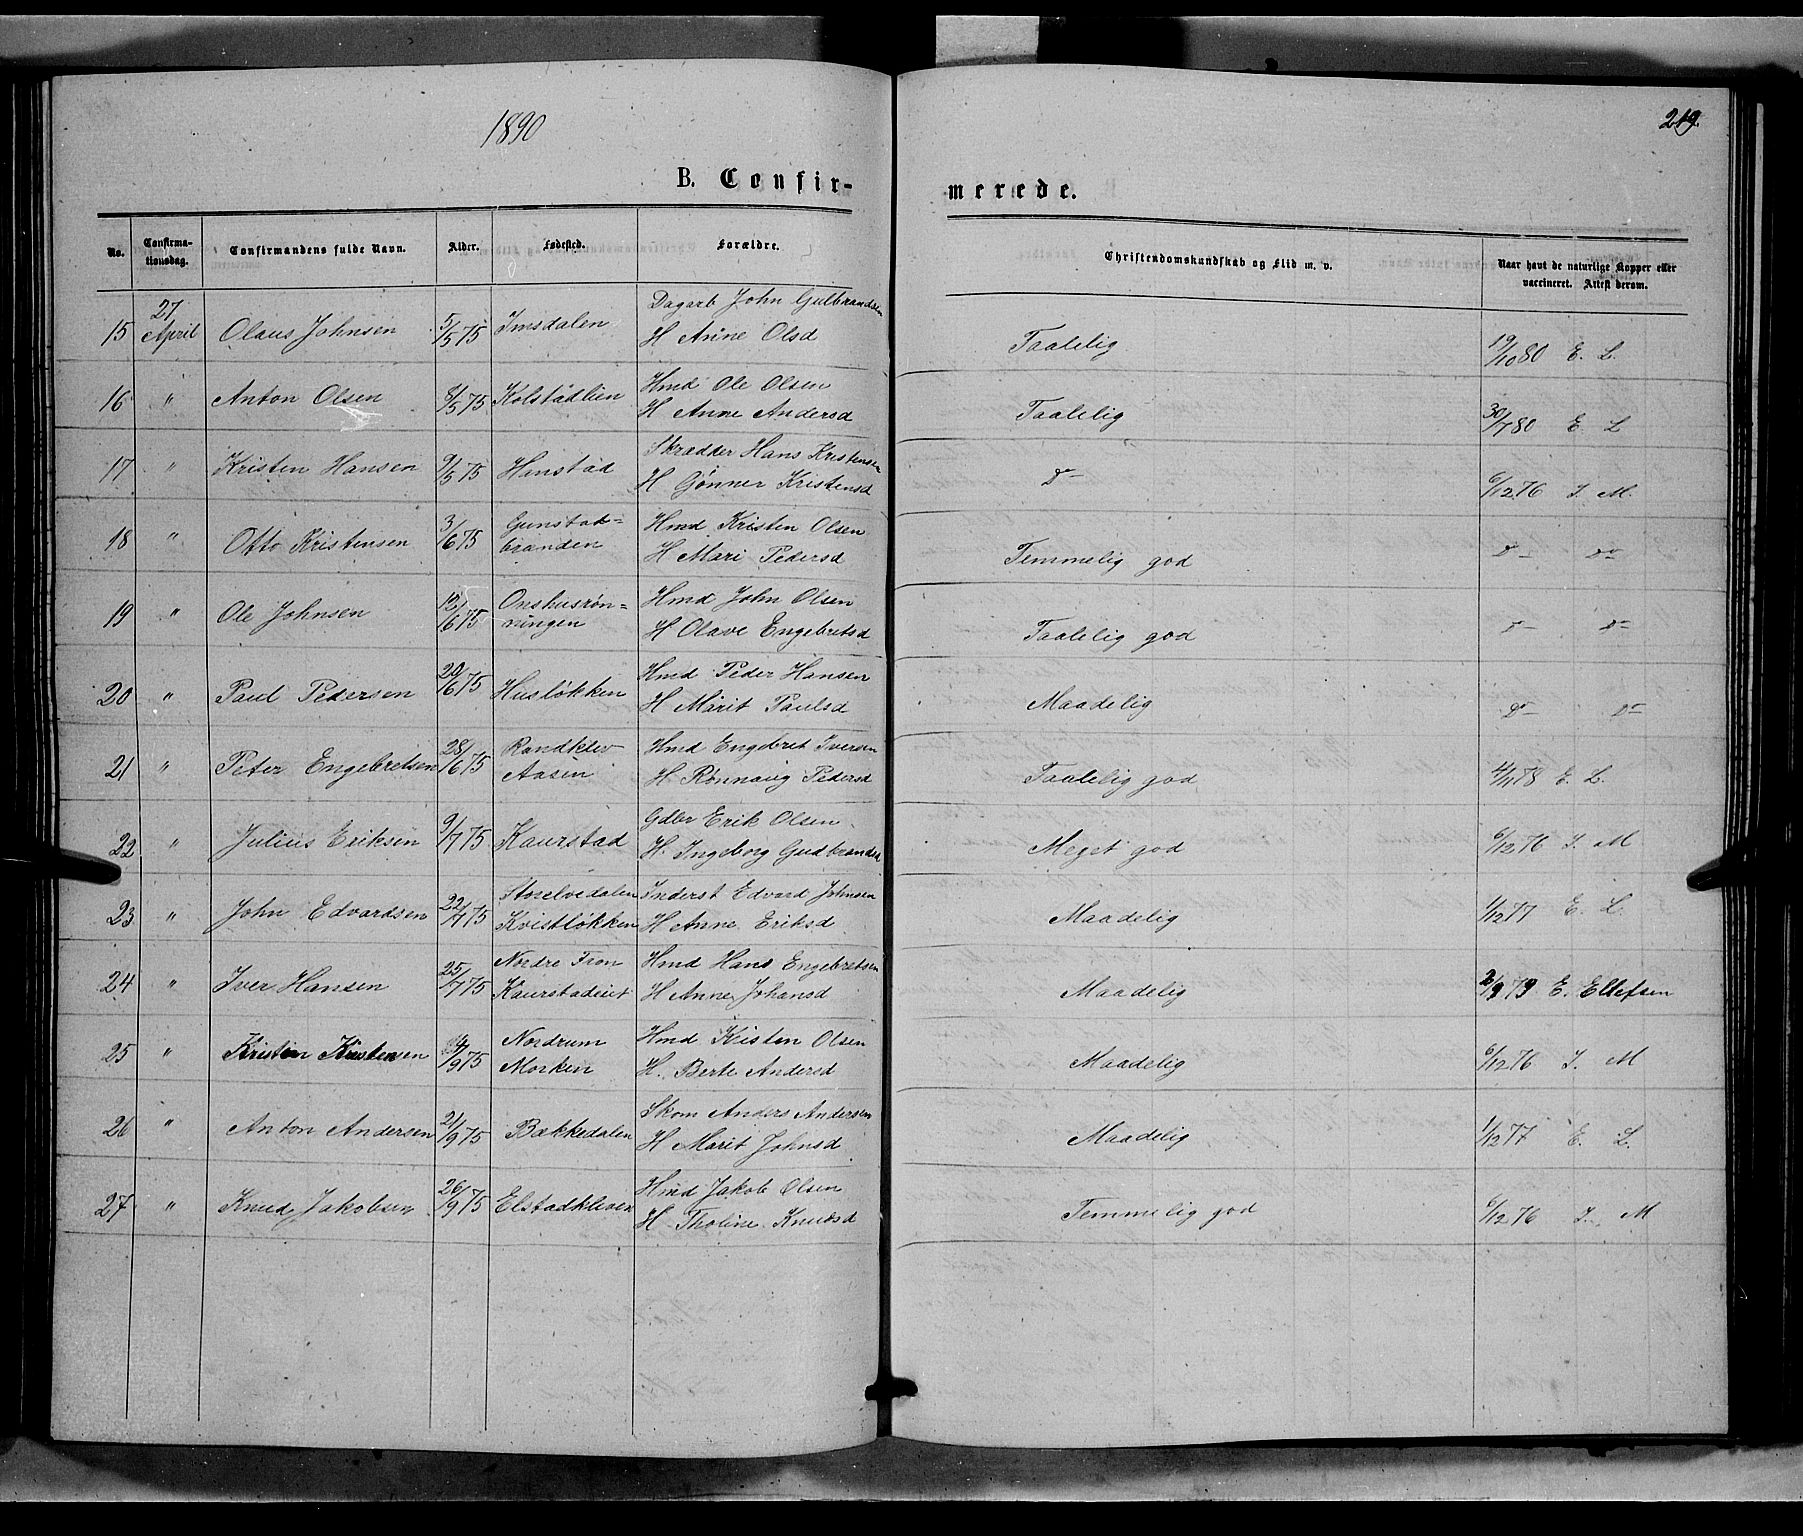 1890
219.
B. Confir-
merede.
No.
Confirma-
tionsdag.
Confirmandens fulde Navn.
Alder.
Fødested.
Forældre.
Christendomskundskab og Flid m. v.
Naar havt de naturlige Kopper eller
vaccineret. Attest derom.
27
Dagarb John Gulbrandsen
15 April Olaus Johnsen 5/5 75 Imsdalen
H Anne Olsd
Taalelig 19/10 80 E. L.
Hmd Ole Olsen
16 " Anton Olsen 8/5 75 Kolstadlien
H Anne Andersd
Taalelig 30/7 80 E L
Skrædder Hans Kristensen
17 " Kristen Hansen 9/5 75 Hinstad
H Gønner Kristensd
do 6/12 76 J. M.
Gunstad= Hmd Kristen Olsen
18 " Otto Kristensen 3/6 75 brænden H Mari Pedersd
Temmelig god do do
Onshusrøn= Hmd John Olsen
19 " Ole Johnsen 12/6 75 ningen H Olave Engebretsd
Taalelig god do do
Hmd Peder Hansen
20 " Paul Pedersen 20/6 75 Husløkken
H Marit Paulsd
Maadelig do do
Randklev Hmd Engebret Iversen
21 " Peter Engebretsen 28/6 75 Aasen H Rønnaug Pedersd
Taalelig god 4/11 78 E. L.
Gdbr Erik Olsen
22 " Julius Eriksen 9/7 75 Kaurstad
H. Ingeborg Gudbrandsd
Meget god 6/12 76 J. M
Storelvedalen Inderst Edvard Johnsen
23 " John Edvardsen 22/7 75 Kvistløkken H Anne Eriksd
Maadelig 1/12 77 E. L.
Nordre Fron Hmd Hans Engebretsen
24 " Iver Hansen 25/7 75 Kaurstadeiet H Anne Johansd
Maadelig 79 E. Ellefsen
Nordrum Hmd Kristen Olsen
25 " Kristen Kristensen /9 75 Morken H. Berte Andersd
Maadelig 6/12 76 J. M
Skom Anders Andersen
26 " Anton Andersen 21/9 75 Bækkedalen
H Marit Johnsd
Maadelig 1/12 77 E. L.
Hmd Jakob Olsen
27 " Knud Jakobsen 26/9 75 Elstadkleven
H Tholine Knudsd
Temmelig god 6/12 76 J. M